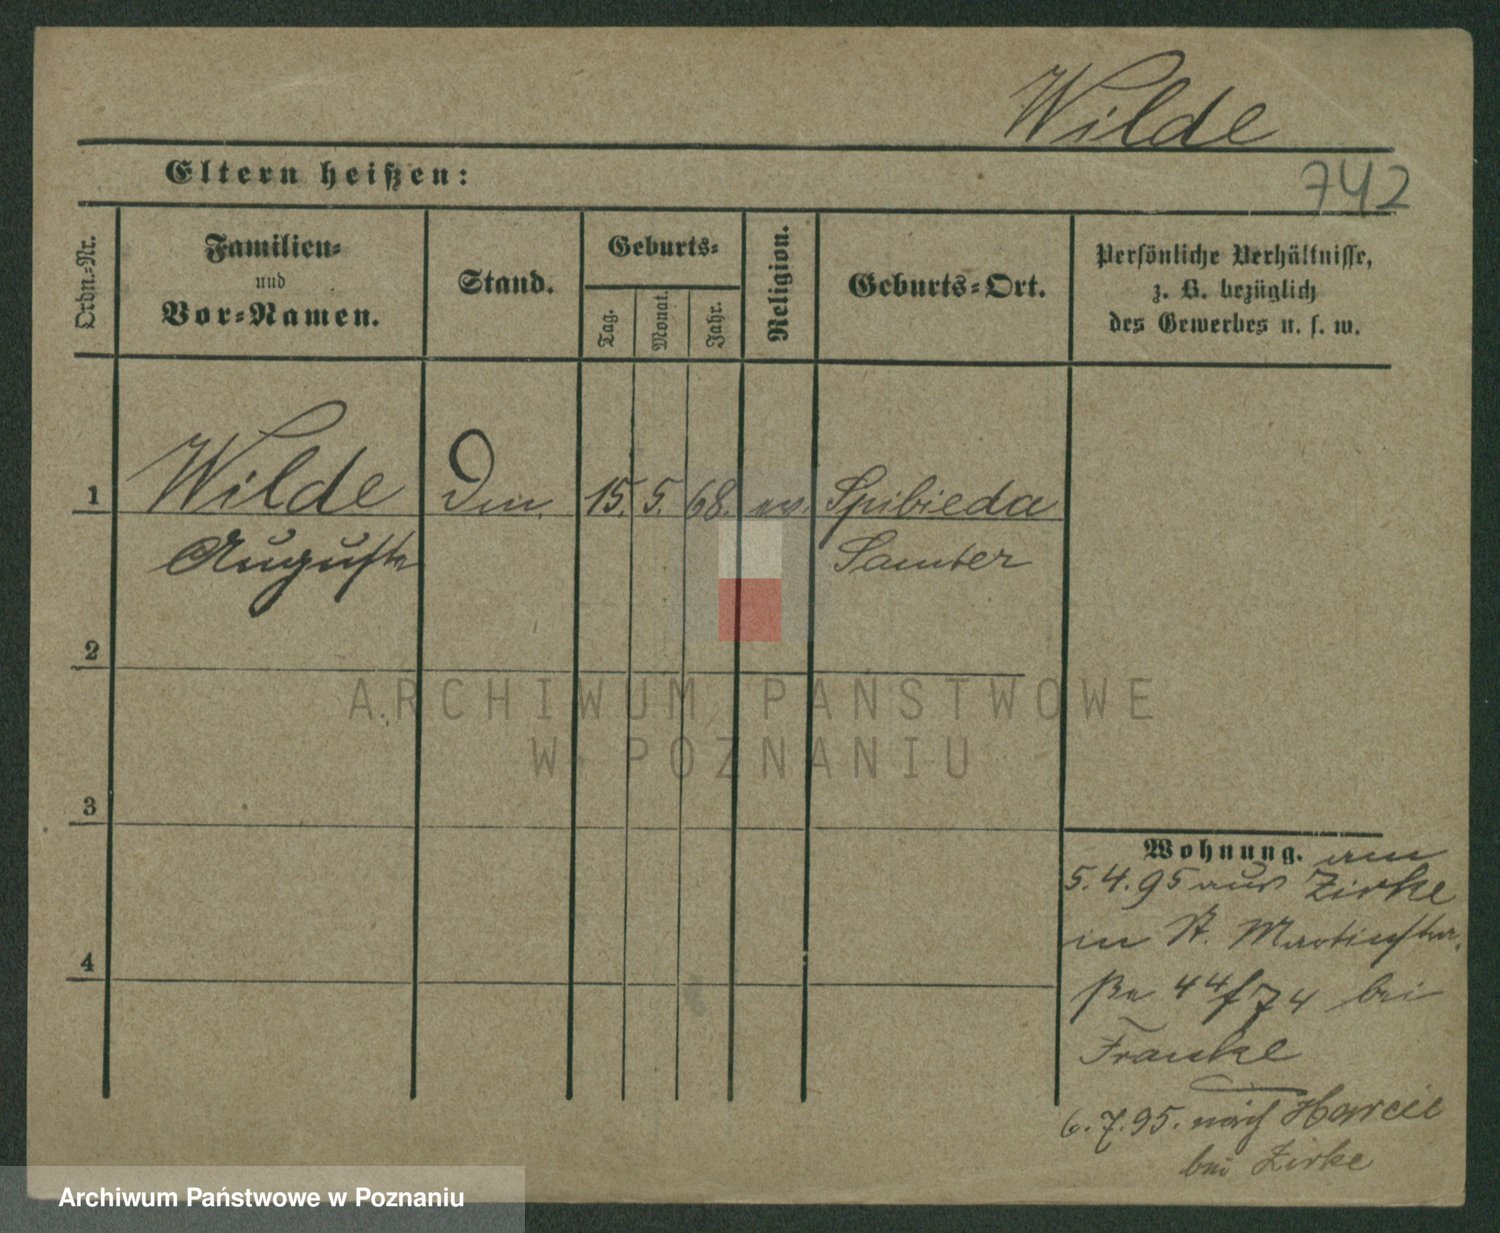 Wilde
Eltern heißen:
742
Ordn.-Nr.
Familien-
und
Vor-Namen.
Stand.
Geburts-
Tag.
Monat.
Jahr.
Religion.
Geburts-Ort.
Persönliche Verhältnisse,
z. B. bezüglich
des Gewerbes u. s. w.
1
Wilde
15. 5. 68. ev.
Auguste
Samter
2
3
4
ARCHIWUM PAŃSTWOWE
W POZNANIU
Wohnung. am
5.4.95 aus Zirke
in St. Martinstra
ße 44/74 bei
Frankel
6.7.95. nach
bei Zirke
Archiwum Państwowe w Poznaniu